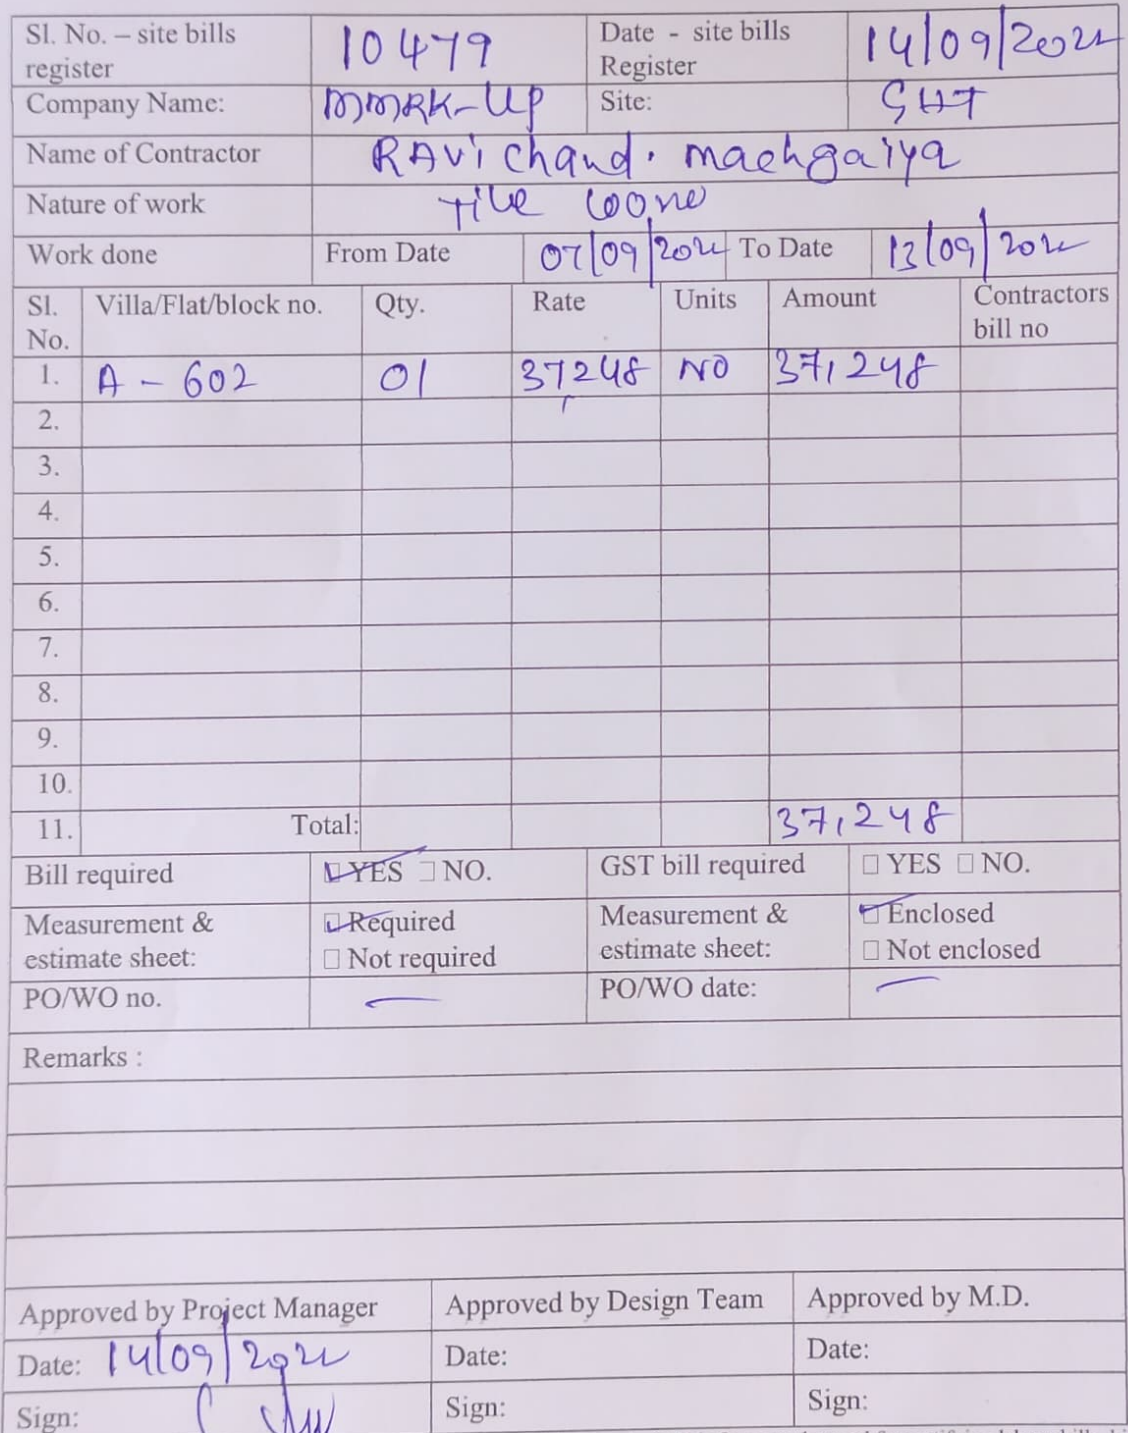 Sl. No. – site bills register 10479 Date - site bills Register 14/09/2022
Company Name: MMRK-UP Site: GHT
Name of Contractor RAVi chand. machgaiya
Nature of work Tile
Work done From Date 07/09/2022 To Date 13/09/2022
Sl. No. Villa/Flat/block no. Qty. Rate Units Amount Contractors bill no
1. A - 602 01 37248 NO 37,248
2.
3.
4.
5.
6.
7.
8.
9.
10.
11. Total: 37,248
Bill required YES NO. GST bill required YES NO.
Measurement & estimate sheet: Required Not required Measurement & estimate sheet: Enclosed Not enclosed
PO/WO no. — PO/WO date: —
Remarks :
Approved by Project Manager Approved by Design Team Approved by M.D.
Date: 14/09/2022 Date: Date:
Sign: Sign: Sign: